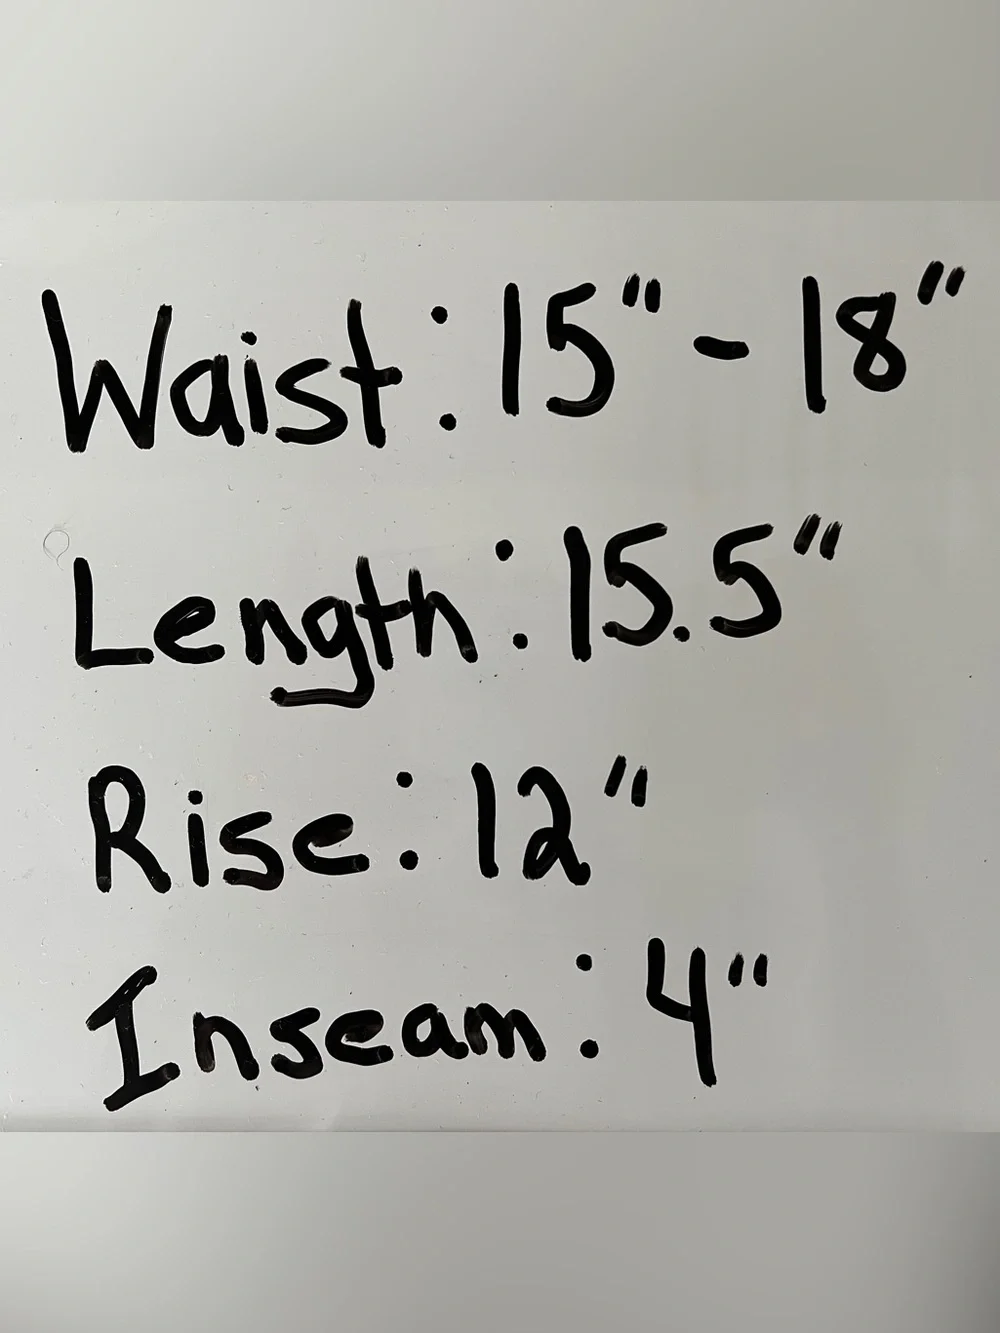 Waist: 15" - 18"
Length: 15.5"
Rise: 12"
Inseam: 4"